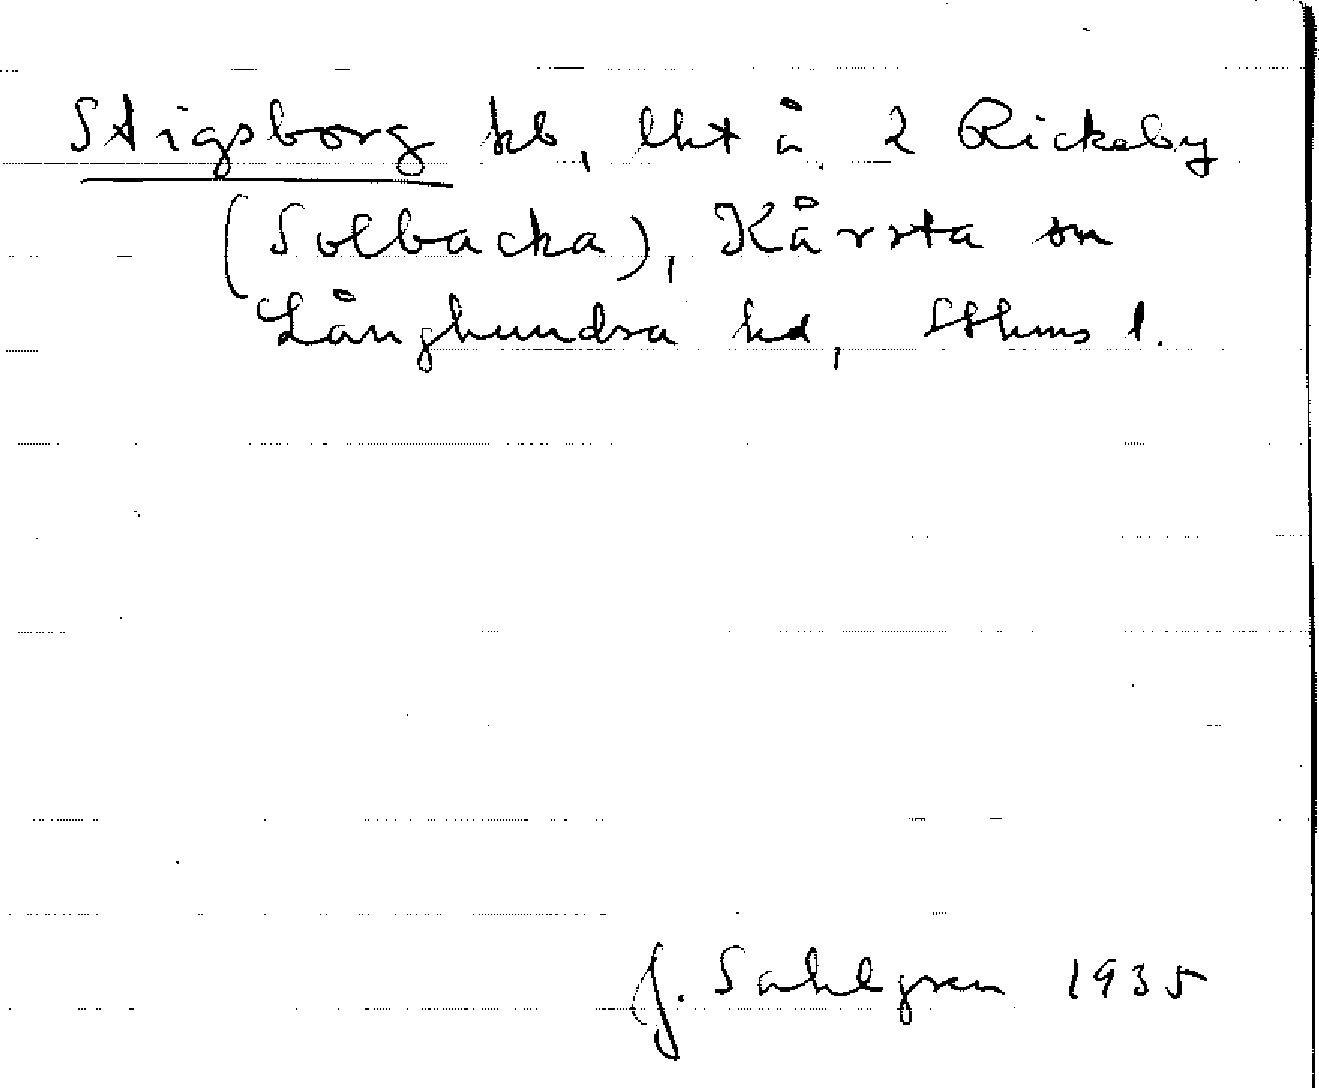 Stigsborg hb, lht å 2 Rickeby
(Solbacka), Kårsta sn
Långhundra hd, Sthms l.
J. Sahlgren 1935